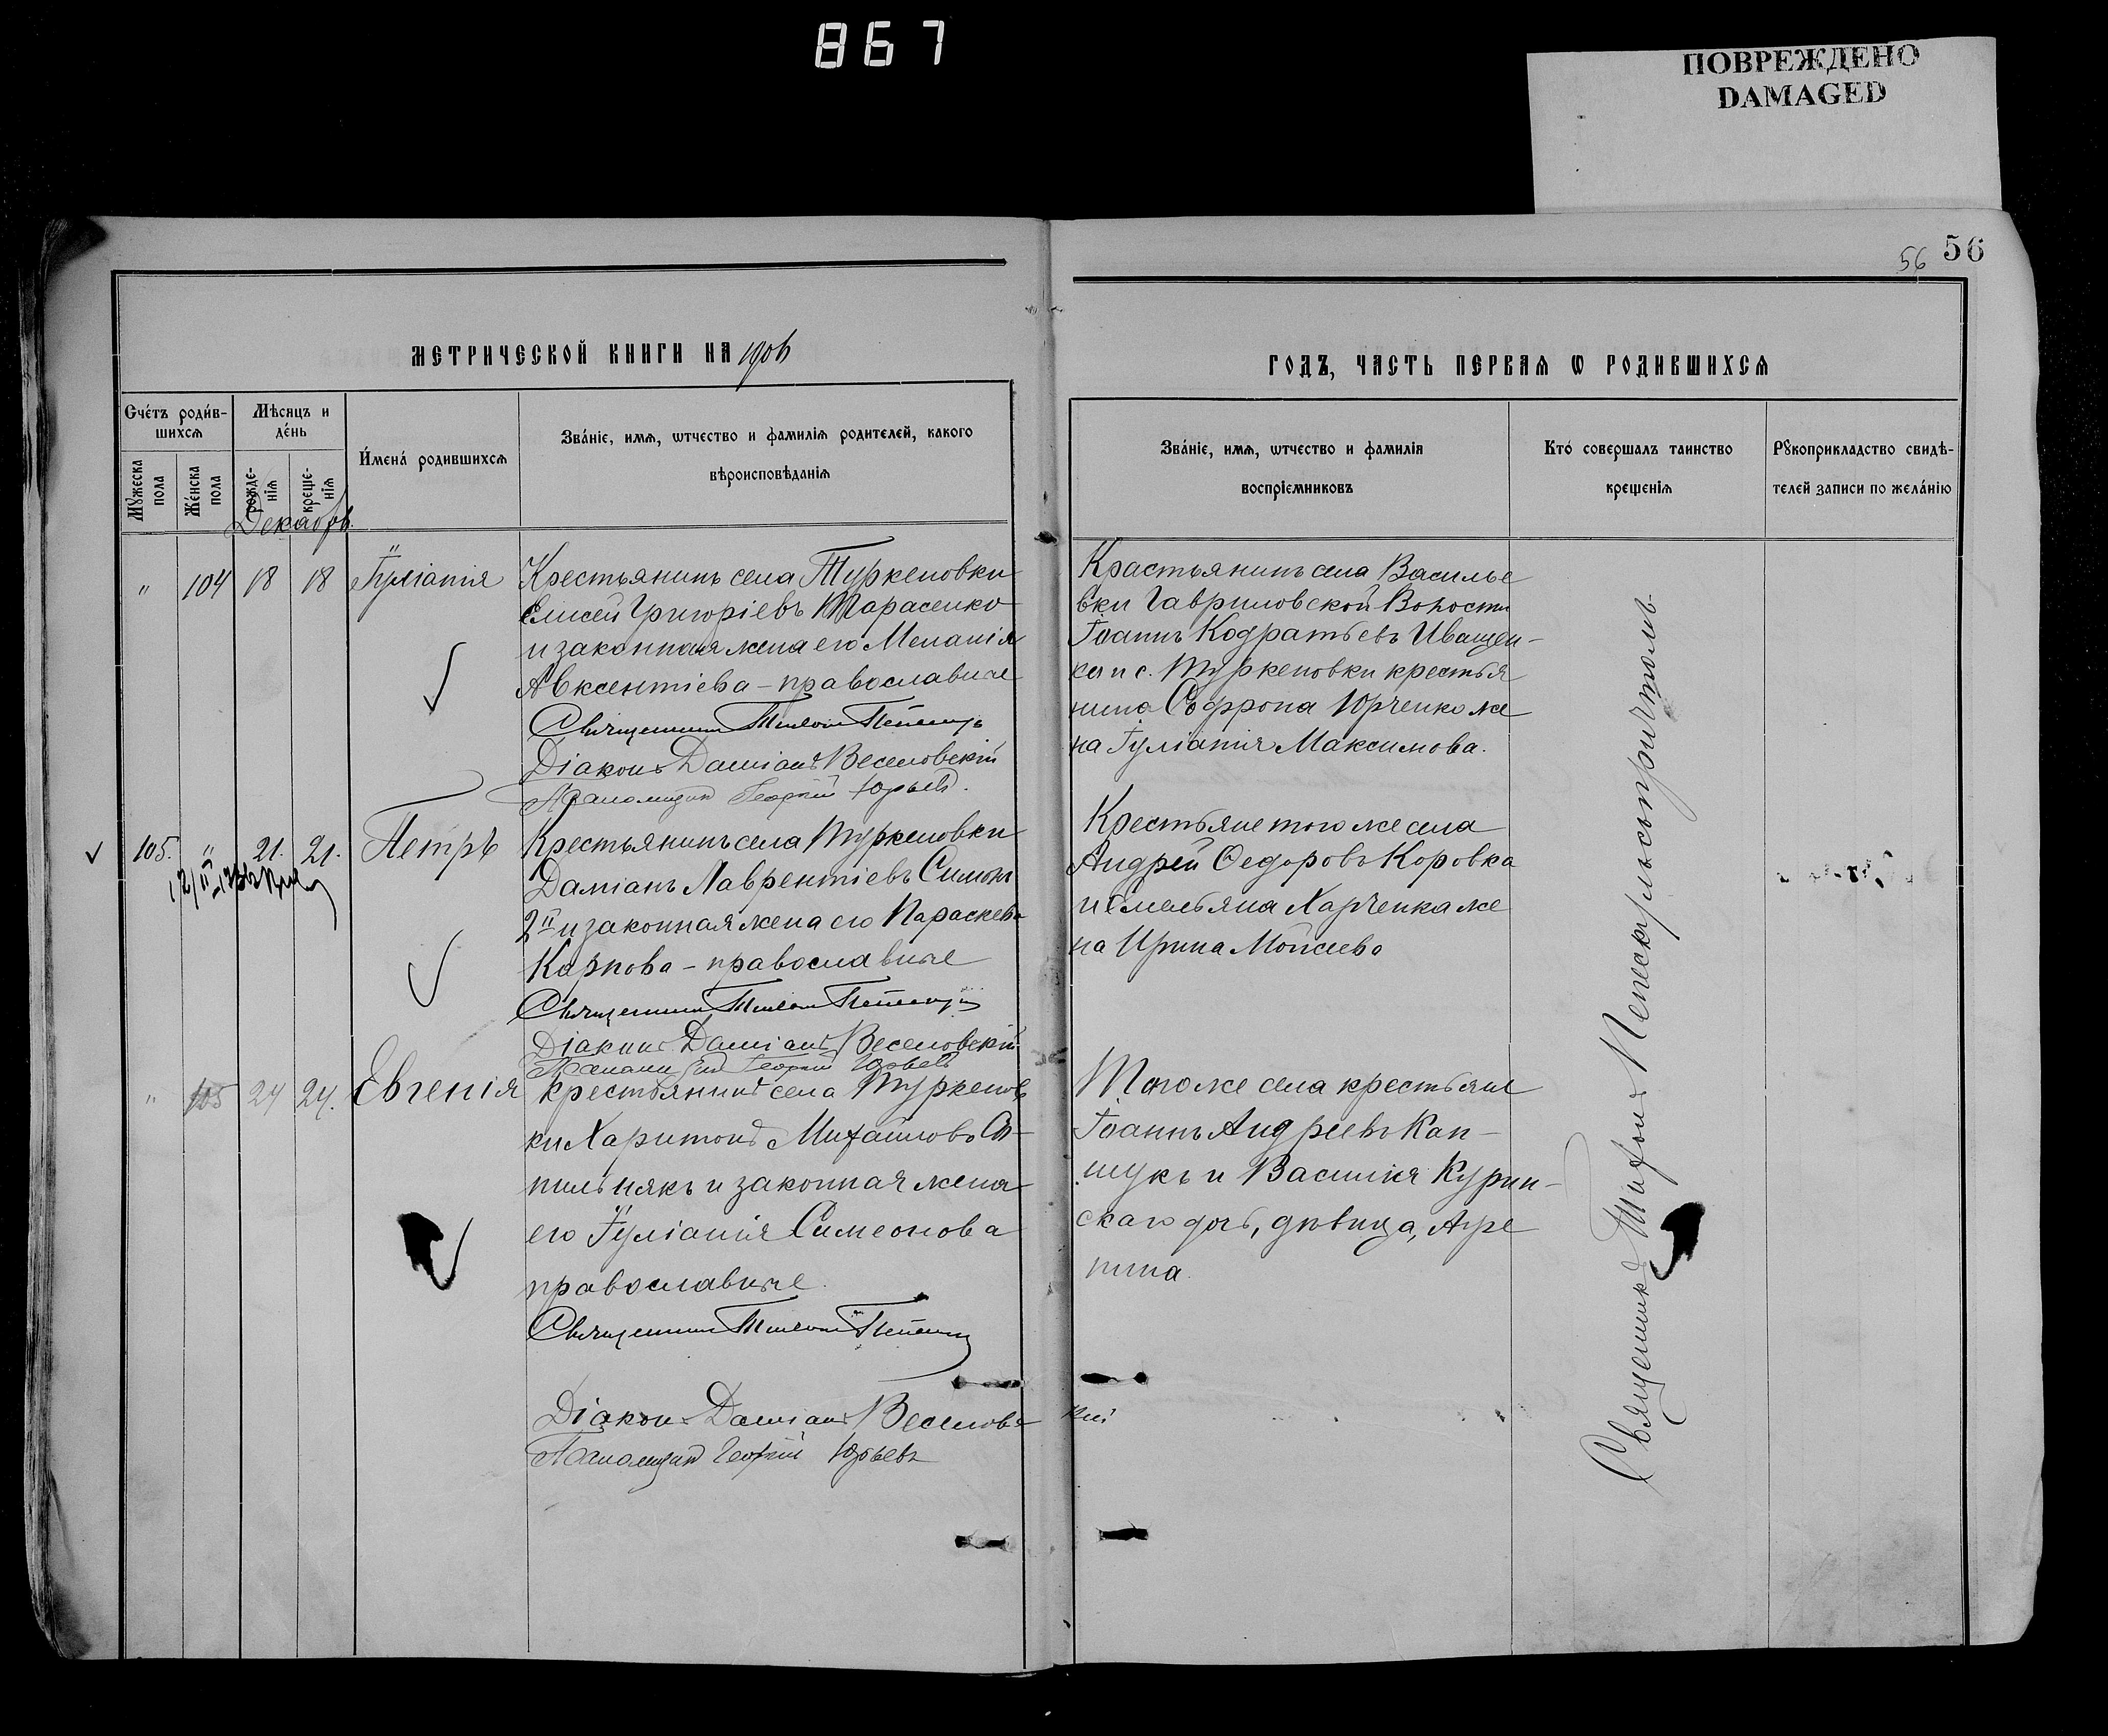 867
ПОВРЕЖДЕНО
DAMAGED
56 56
МЕТРИЧЕСКОЙ КНИГИ НА 1906
ГОДЪ, ЧАСТЬ ПЕРВАѦ Ѡ РОДИВШИХСѦ
Счéтъ роди́в-
шихсѧ
Мꙋжеска
пола
Же́нска
пола
Мѣсяцъ и
де́нь
рожде-
нїѧ
креще-
нїѧ
И҆мена́ родившихсѧ
Зва́нїе, имѧ, ѡтчество и фамилїѧ родителей, какого
вѣроисповѣданїѧ
Зва́нїе, имѧ, ѡтчество и фамилїѧ
воспрїемниковъ
Кто́ совершалъ таинство
крещенїѧ
Рꙋкоприкладство свидѣ-
телей записи по жела́нїю
Декабрь
" 104 18 18 Іуліанія
Крестьянинъ села Туркеновки
Елисей Григоріевъ Тарасенко
и законная жена его Меланія
Авксентіева - православные
Священникъ
Діаконъ Даміанъ Веселовскій
Псаломщикъ Георгій Юрьевъ.
Крастьянинъ села Василье
вки Гавриловской Волости
Іоаннъ Кодратьевъ Иващен-
ко и с. Туркеновки крестья
нина Софрона Юрченко же
на Іуліанія Максимова.
105. " 21. 21. Петръ
Крестьянинъ села Туркеновки
Даміанъ Лаврентіевъ
2й и законная жена его Параскева
Карпова - православные
Священникъ
Діаконъ Даміанъ Веселовскій
Псаломщикъ Георгій Юрьевъ
Крестьяне того же села
Андрей Ѳедоровъ Коровка
и Емельяна Харченка же
на Ирина Моисеева
" 105 24 24. Евгенія
Крестьянинъ села Туркенов
ки Харитонъ Михайловъ Со-
пильнякъ и законная жена
его Іуліанія Симеонова
православные.
Священникъ
Діаконъ Даміанъ Веселовскій
Псаломщикъ Георгій Юрьевъ
Того же села крестьяне
Іоаннъ Андреевъ Кап-
шукъ и Василія Курин-
скаго дочь, дѣвица, Агре
пина.
Священникъ